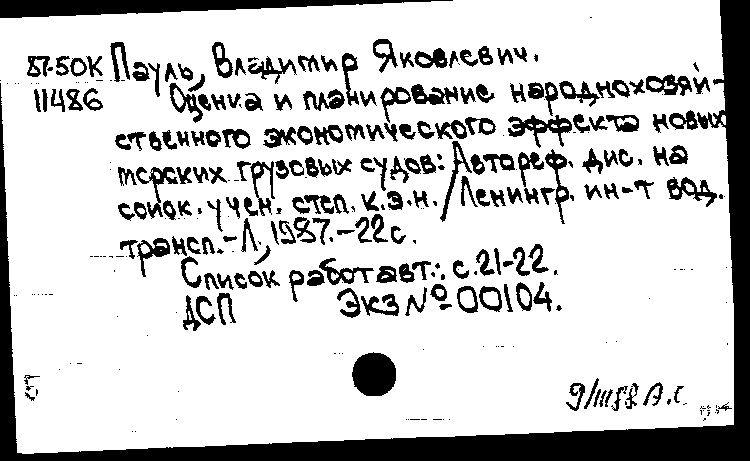 87-50К Пауль, Владимир Яковлевич.
11486 Оценка и планирование народнохозяй-
ственного экономического эффекта новых
морских грузовых судов: Автореф. дис. на
соиск. учен. степ. к.э.н. / Ленингр. ин-т вод.
трансп. - Л., 1987. - 22 с.
Список работ авт.: с. 21-22.
ДСП Экз № 00104.
9/III 88 А.С.